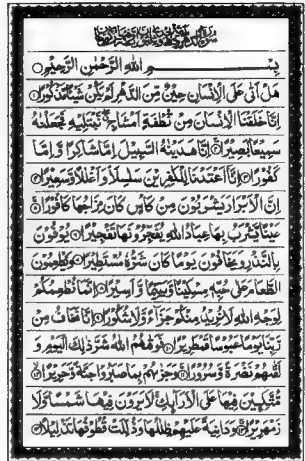 بِسْمِ اللهِ الرَّحْمٰنِ الرَّحِيْمِ
هَلْ اَتٰى عَلَى الْاِنْسَانِ حِيْنٌ مِّنَ الدَّهْرِ لَمْ يَكُنْ شَيْئًا مَّذْكُوْرًا
اِنَّا خَلَقْنَا الْاِنْسَانَ مِنْ نُّطْفَةٍ اَمْشَاجٍ نَّبْتَلِيْهِ فَجَعَلْنٰهُ
سَمِيْعًا بَصِيْرًا اِنَّا هَدَيْنٰهُ السَّبِيْلَ اِمَّا شَاكِرًا وَّ اِمَّا
كَفُوْرًا اِنَّا اَعْتَدْنَا لِلْكٰفِرِيْنَ سَلٰسِلَا وَ اَغْلٰلًا وَّ سَعِيْرًا
اِنَّ الْاَبْرَارَ يَشْرَبُوْنَ مِنْ كَاْسٍ كَانَ مِزَاجُهَا كَافُوْرًا
عَيْنًا يَّشْرَبُ بِهَا عِبَادُ اللهِ يُفَجِّرُوْنَهَا تَفْجِيْرًا يُوْفُوْنَ
بِالنَّذْرِ وَ يَخَافُوْنَ يَوْمًا كَانَ شَرُّهٗ مُسْتَطِيْرًا وَ يُطْعِمُوْنَ
الطَّعَامَ عَلٰى حُبِّهٖ مِسْكِيْنًا وَّ يَتِيْمًا وَّ اَسِيْرًا اِنَّمَا نُطْعِمُكُمْ
لِوَجْهِ اللهِ لَا نُرِيْدُ مِنْكُمْ جَزَآءً وَّ لَا شُكُوْرًا اِنَّا نَخَافُ مِنْ
رَّبِّنَا يَوْمًا عَبُوْسًا قَمْطَرِيْرًا فَوَقٰهُمُ اللهُ شَرَّ ذٰلِكَ الْيَوْمِ وَ
لَقّٰهُمْ نَضْرَةً وَّ سُرُوْرًا وَ جَزٰىهُمْ بِمَا صَبَرُوْا جَنَّةً وَّ حَرِيْرًا
مُّتَّكِـِٕيْنَ فِيْهَا عَلَى الْاَرَآىِٕكِ لَا يَرَوْنَ فِيْهَا شَمْسًا وَّ لَا
زَمْهَرِيْرًا وَ دَانِيَةً عَلَيْهِمْ ظِلٰلُهَا وَ ذُلِّلَتْ قُطُوْفُهَا تَذْلِيْلًا